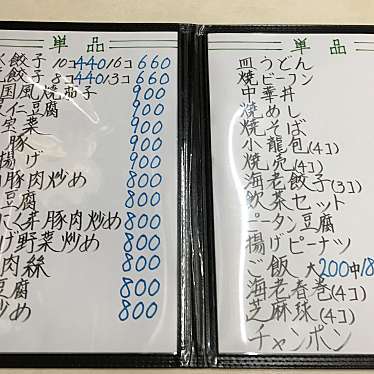 単品
餃子 10コ440 16コ 660
餃子 8コ440 13コ 660
国風焼餃子 900
仁豆腐 900
宝菜 900
豚 900
揚げ 900
豚肉炒め 800
豆腐 800
にく芽豚肉炒め 800
げ野菜炒め 800
肉絲 800
豆腐 800
炒め 800
単品
皿うどん
焼ビーフン
中華丼
焼めし
焼そば
小龍包(4コ)
焼売(4コ)
海老餃子(3コ)
飲茶セット
ピータン豆腐
揚げピーナツ
ご飯 大200中18
海老春巻(4コ)
芝麻球(4コ)
チャンポン